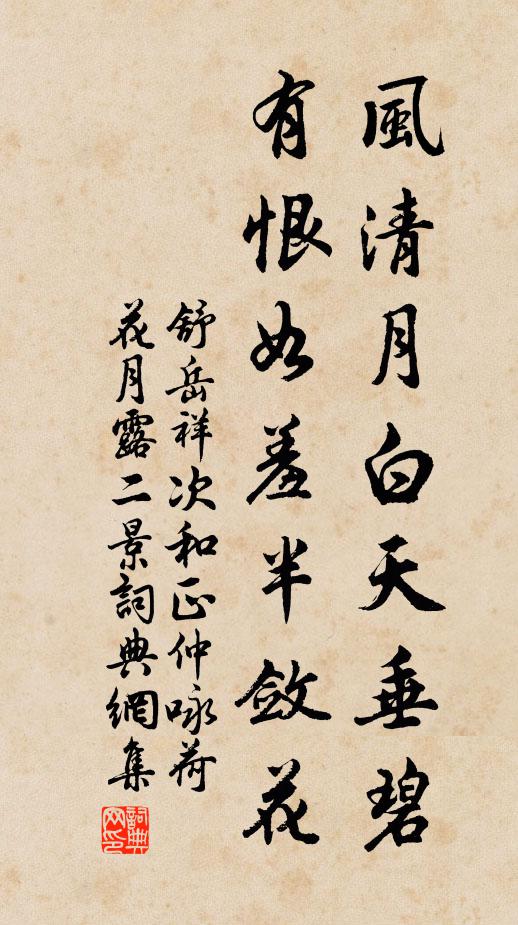 風清月白天垂碧
有恨如羞半斂花
舒岳祥次和正仲咏荷
花月露二景詞典網集
詞典网印